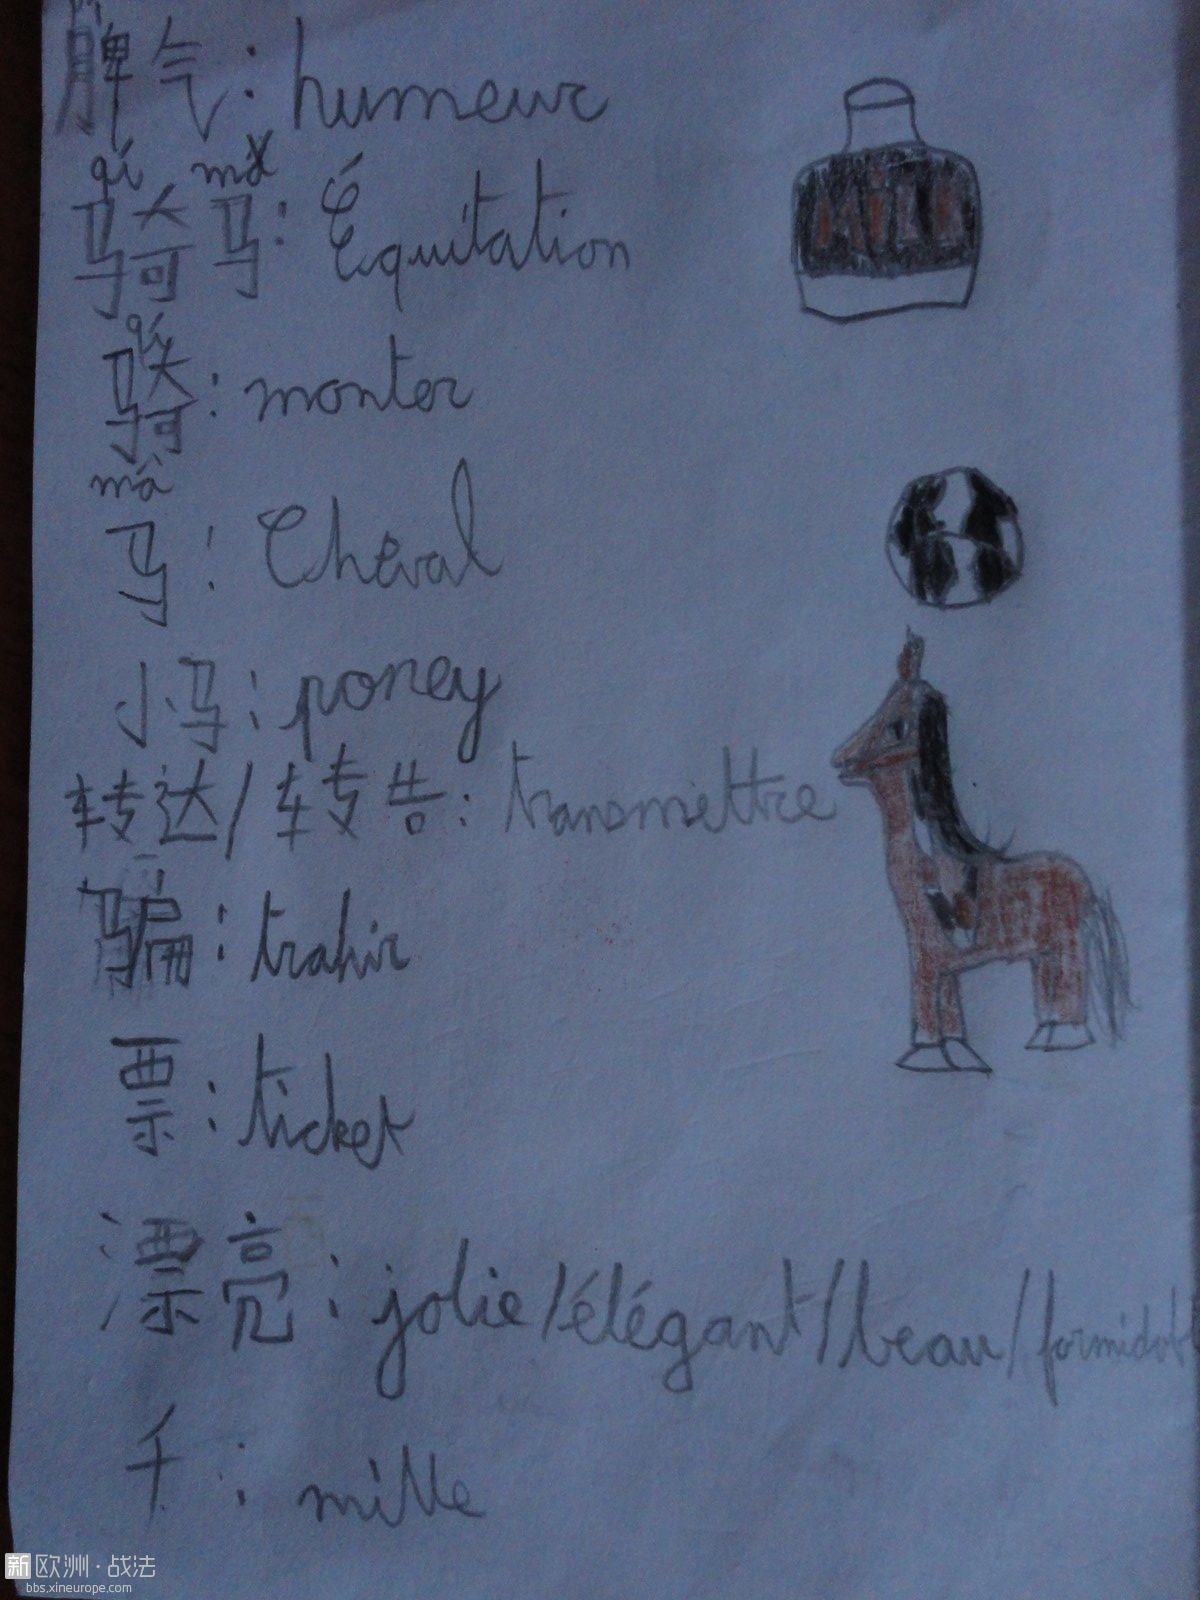 脾气: humeur
qí mǎ
骑马: Équitation
qí
骑: monter
mǎ
马: Cheval
小马: poney
转达/转告: transmettre
骗: trahir
票: ticket
漂亮: jolie/élégant/beau/
千: mille
新欧洲·战法
bbs.xineurope.com